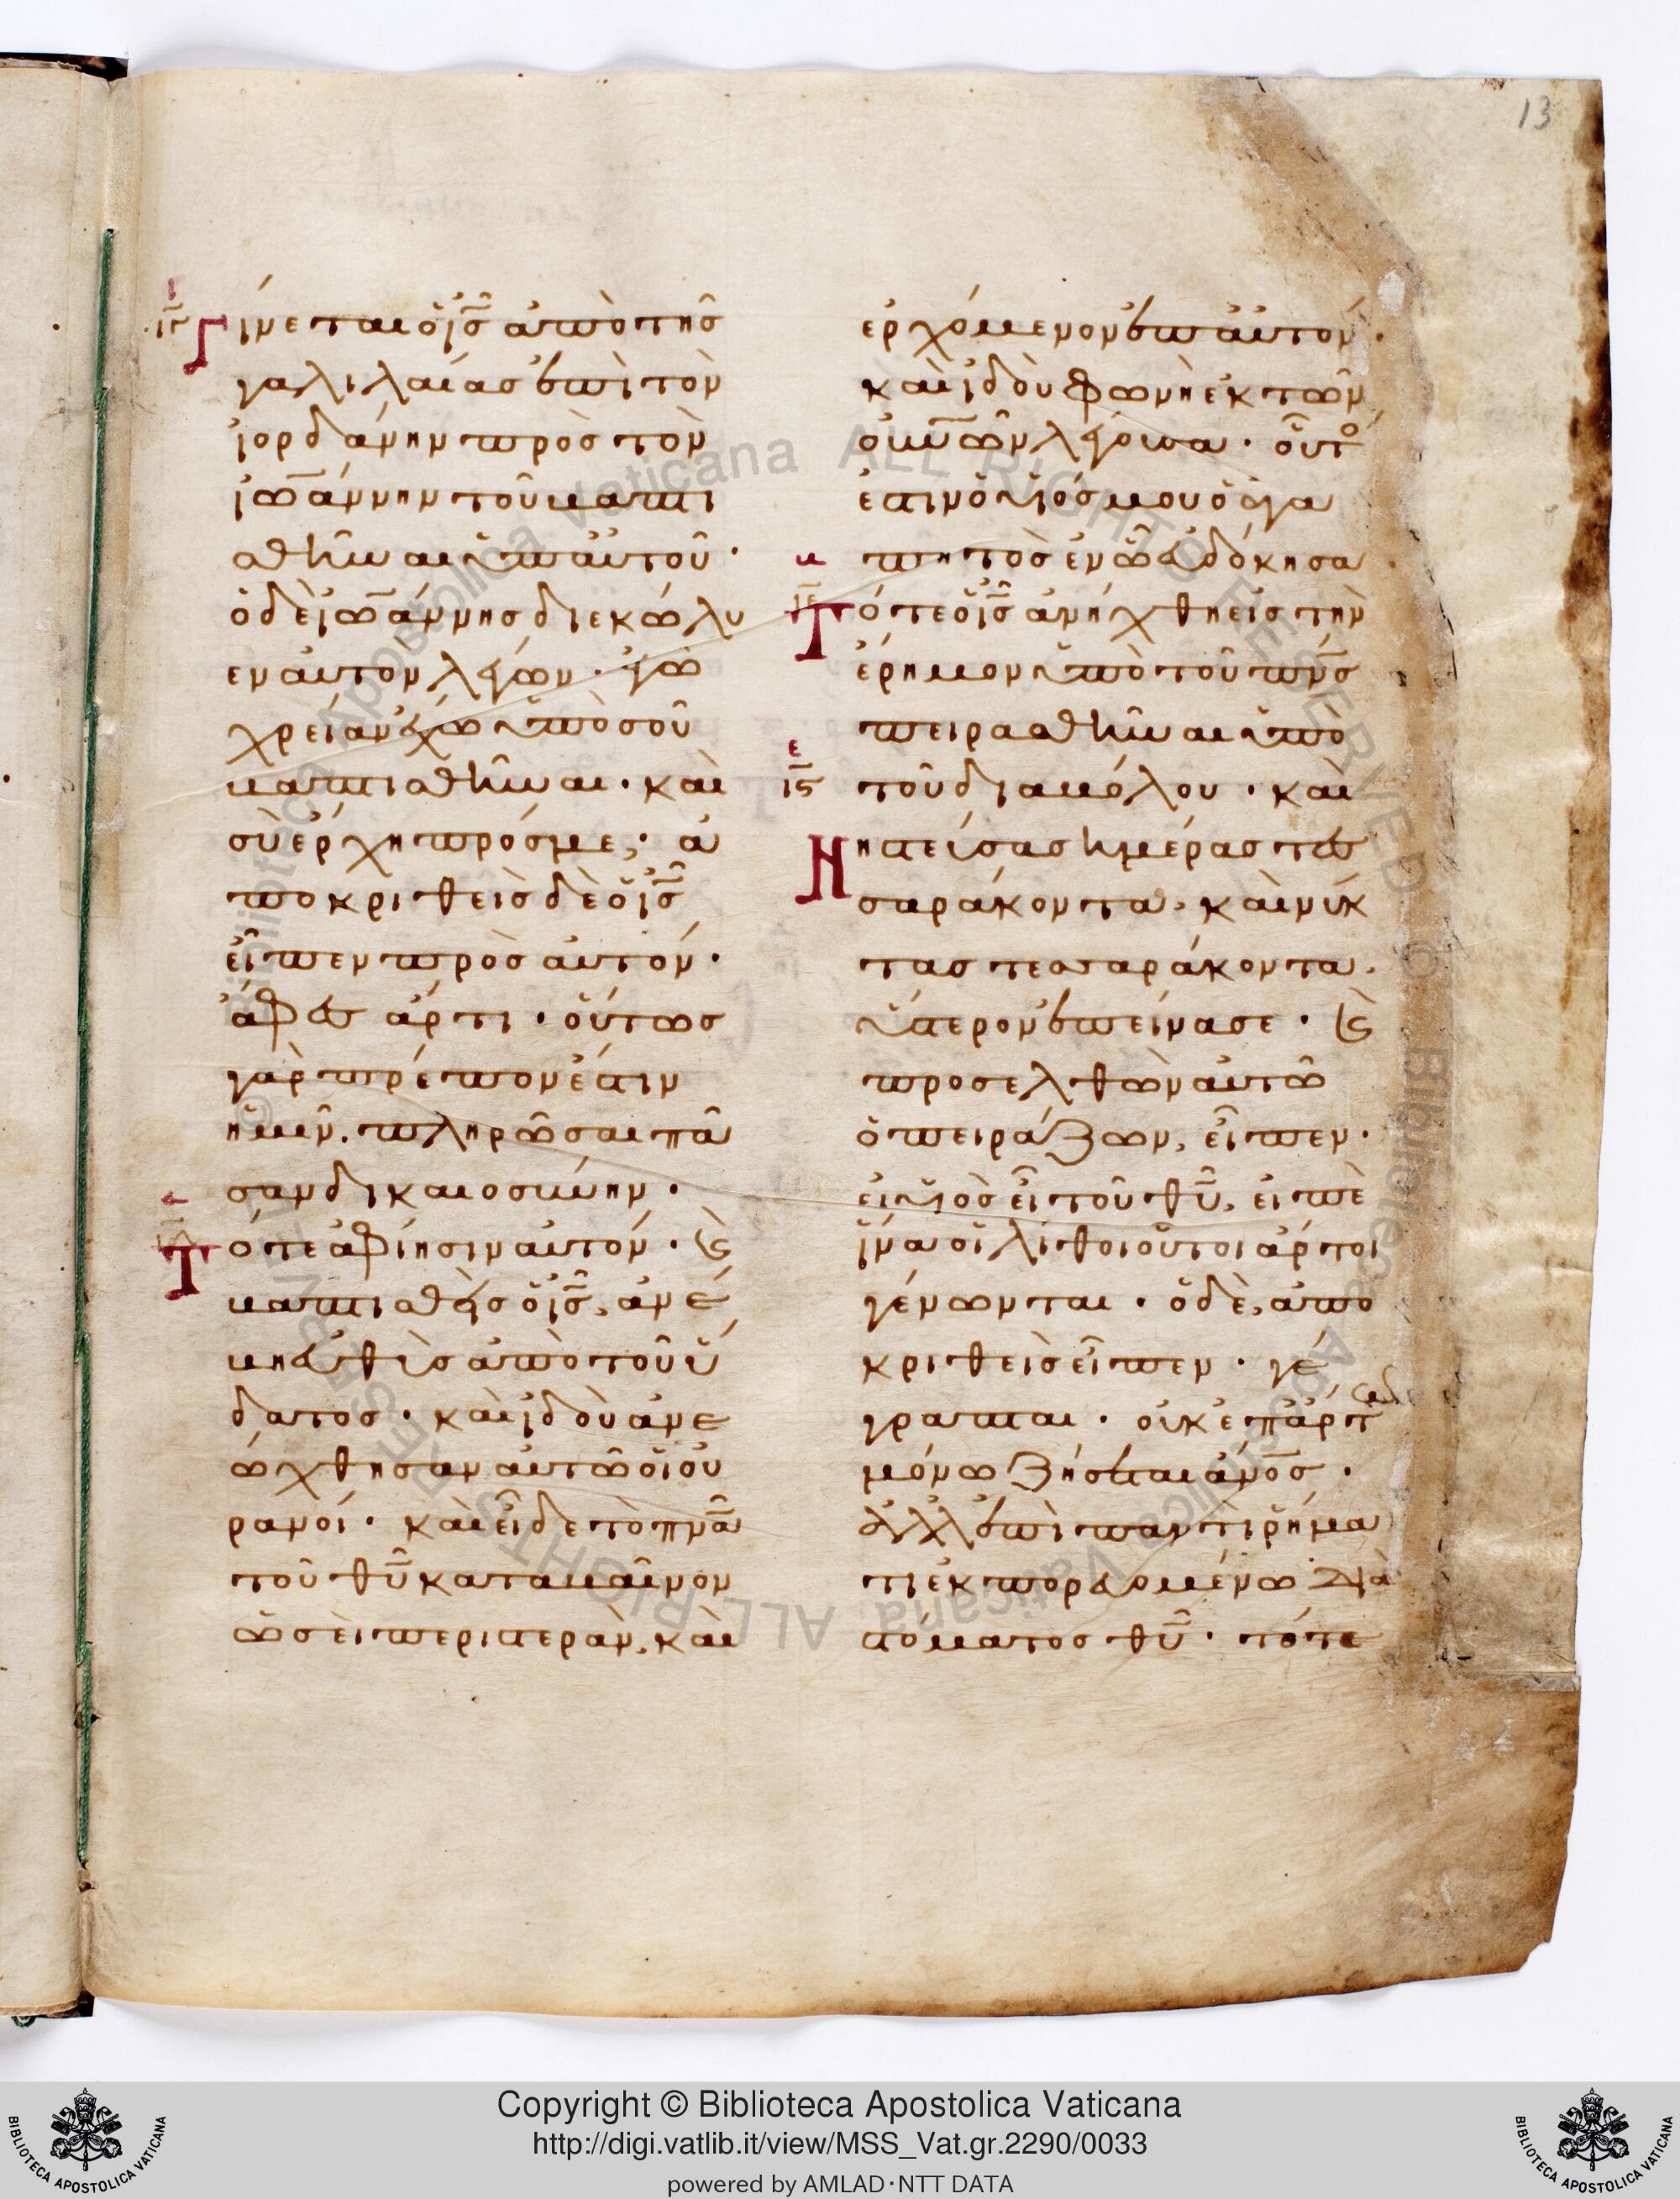 13
Γίνεται ὁ ἰ̅ς̅ ἀπὸ τῆς
γαλιλαίας ἐπὶ τὸν
ἰορδάνην πρὸς τὸν
ἰωάννην τοῦ βαπτι
σθῆναι ὑπ αὐτοῦ·
ὁ δὲ ἰωάννης διεκώλυ
εν αὐτὸν λέγων· ἐγὼ
χρείαν ἔχω ὑπὸ σοῦ
βαπτισθῆναι· καὶ
σὺ ἔρχη πρός με; ἀ
ποκριθεὶς δὲ ὁ ἰ̅ς̅
εἶπεν πρὸς αὐτόν·
ἄφες ἄρτι· οὕτως
γὰρ πρέπον ἐστὶν
ἡμῖν, πληρῶσαι πᾶ
σαν δικαιοσύνην·
Τότε ἀφίησιν αὐτόν· ϗ
βαπτισθεὶς ὁ ἰ̅ς̅, ἀνέ
βη εὐθὺς ἀπὸ τοῦ ὕ
δατος· καὶ ἰδοὺ ἀνε
ώχθησαν αὐτῶ οἱ οὐ
ρανοί· καὶ εἶδε τὸ π̅ν̅α̅
τοῦ θ̅υ̅ καταβαῖνον
ὡσεὶ περιστεράν, καὶ
ἐρχόμενον ἐπ αὐτόν·
καὶ ἰδοὺ φωνὴ ἐκ τῶν
οὐν̅ῶν λέγουσα· οὗτο
ἐστιν ὁ υἱός μου ὁ ἀγα
πητὸς ἐν ὧ εὐδόκησα
ιε
Τότε ὁ ἰ̅ς̅ ἀνήχθη εἰς τὴν
ἔρημον ὑπὸ τοῦ π̅ν̅ς̅
πειρασθῆναι ὑπὸ
ε
ις τοῦ διαβόλου· καὶ
Νηστεύσας ἡμέρας τεσ
σαράκοντα, καὶ νύκ
τας τεσσαράκοντα,
ὕστερον ἐπείνασε· ϗ
προσελθὼν αὐτῶ
ὁ πειράζων, εἶπεν·
εἰ υἱὸς εἶ τοῦ θ̅υ̅, εἰπὲ
ἵνα οἱ λίθοι οὗτοι ἄρτοι
γένωνται· ὁ δὲ, ἀπο
κριθεὶς εἶπεν· γέ
γραπται· οὐκ ἐπ ἄρτ
μόνω ζήσεται ἀν̅ο̅ς̅·
ἀλλ ἐπὶ παντὶ ῥήμα
τι ἐκπορευομένω διὰ
στόματος θ̅υ̅· τότε
Copyright © Biblioteca Apostolica Vaticana
http://digi.vatlib.it/view/MSS_Vat.gr.2290/0033
powered by AMLAD·NTT DATA
BIBLIOTECA APOSTOLICA VATICANA
BIBLIOTECA APOSTOLICA VATICANA